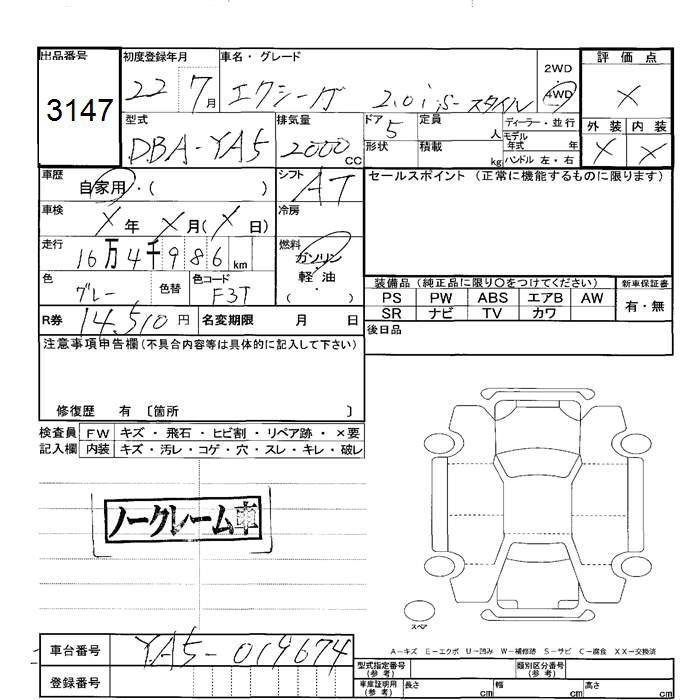 出品番号
3147
初度登録年月
22 7月
車名・グレード
エクシーガ 2.0i S-スタイル
2WD
4WD
評価点
×
外装 内装
× ×
型式
DBA-YA5
排気量
2000 CC
ドア
5
形状
定員 人
積載 kg
ディーラー・並行
モデル年式 年
ハンドル 左・右
車歴
自家用・( )
シフト
AT
セールスポイント (正常に機能するものに限ります)
車検
×年 ×月(×日)
冷房
走行
16万4千986km
燃料
ガソリン
軽・油
( )
色
グレー
色替
色コード
F3T
装備品(純正品に限り〇をつけてください)
新車保証書
PS PW ABS エアB AW
SR ナビ TV カワ
有・無
R券 14,510円
名変期限 月 日
後日品
注意事項申告欄(不具合内容等は具体的に記入して下さい)
修復歴 有 〔箇所 〕
検査員 FW キズ・飛石・ヒビ割・リペア跡・×要
記入欄 内装 キズ・汚レ・コゲ・穴・スレ・キレ・破レ
ノークレーム車
スペア
A-キズ E-エクボ U-凹み W-補修跡 S-サビ C-腐食 XX-交換済
車台番号 YA5-019674
登録番号
型式指定番号(参考)
類別区分番号(参考)
車庫証明用(参考) 長さ cm 幅 cm 高さ cm